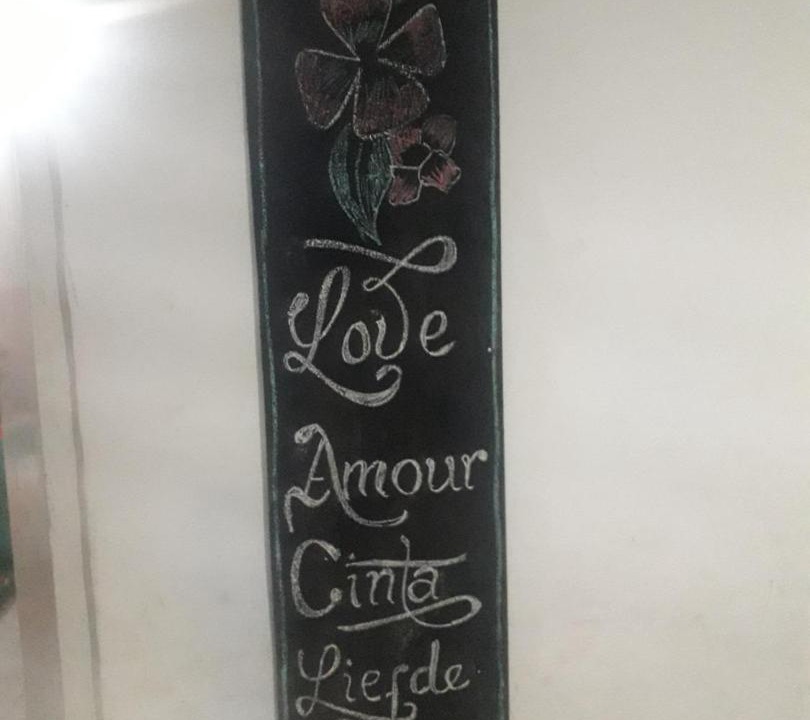 Love
Amour
Cinta
Liefde